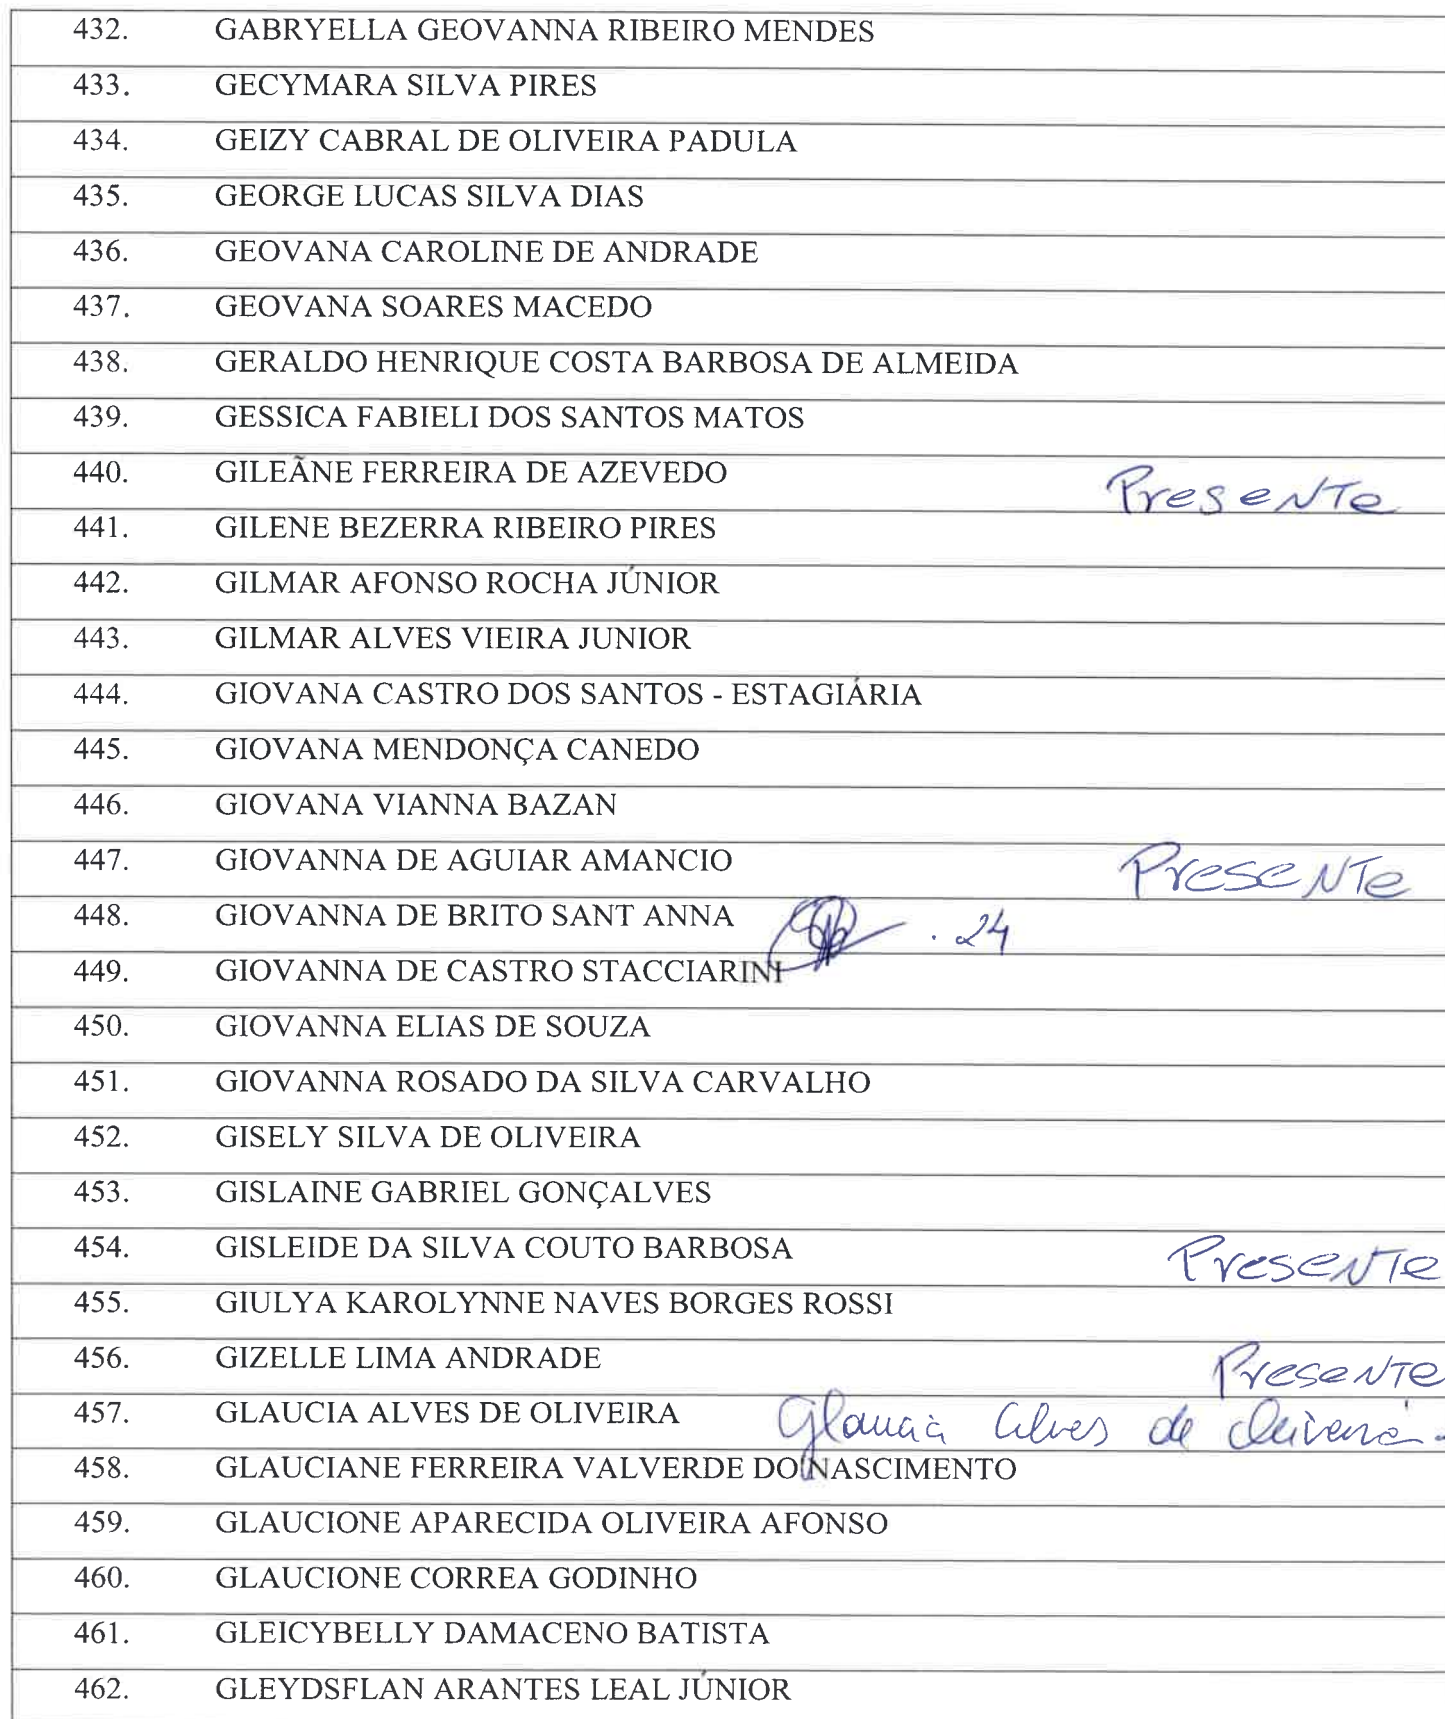 432. GABRYELLA GEOVANNA RIBEIRO MENDES
433. GECYMARA SILVA PIRES
434. GEIZY CABRAL DE OLIVEIRA PADULA
435. GEORGE LUCAS SILVA DIAS
436. GEOVANA CAROLINE DE ANDRADE
437. GEOVANA SOARES MACEDO
438. GERALDO HENRIQUE COSTA BARBOSA DE ALMEIDA
439. GESSICA FABIELI DOS SANTOS MATOS
440. GILEÃNE FERREIRA DE AZEVEDO Presente
441. GILENE BEZERRA RIBEIRO PIRES
442. GILMAR AFONSO ROCHA JÚNIOR
443. GILMAR ALVES VIEIRA JUNIOR
444. GIOVANA CASTRO DOS SANTOS - ESTAGIÁRIA
445. GIOVANA MENDONÇA CANEDO
446. GIOVANA VIANNA BAZAN
447. GIOVANNA DE AGUIAR AMANCIO Presente
448. GIOVANNA DE BRITO SANT ANNA . 24
449. GIOVANNA DE CASTRO STACCIARINI
450. GIOVANNA ELIAS DE SOUZA
451. GIOVANNA ROSADO DA SILVA CARVALHO
452. GISELY SILVA DE OLIVEIRA
453. GISLAINE GABRIEL GONÇALVES
454. GISLEIDE DA SILVA COUTO BARBOSA Presente
455. GIULYA KAROLYNNE NAVES BORGES ROSSI
456. GIZELLE LIMA ANDRADE Presente
457. GLAUCIA ALVES DE OLIVEIRA Glaucia Alves de Oliveira.
458. GLAUCIANE FERREIRA VALVERDE DO NASCIMENTO
459. GLAUCIONE APARECIDA OLIVEIRA AFONSO
460. GLAUCIONE CORREA GODINHO
461. GLEICYBELLY DAMACENO BATISTA
462. GLEYDSFLAN ARANTES LEAL JÚNIOR